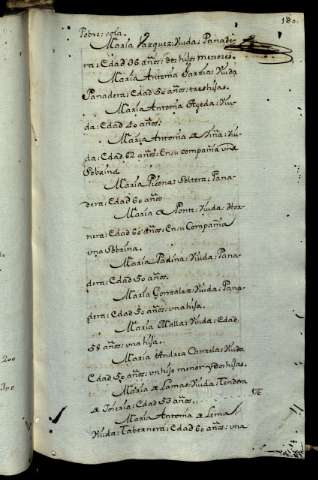 180.
Pobre; sola.
Maria Vazquez; Viuda; Panade-
ra; Edad 36 años; dos hijos menores.
Maria Antonia Garzia; Viuda
Panadera; Edad 50 años; tres hijas.
Maria Antonia Viu-
da; Edad 40 años.
Maria Antonia de Viu-
da; Edad 62 años; En su compañia una
Sobrina
Maria Soltera; Pana-
dera; Edad 60 años
Maria de Ponte; Viuda; Hor-
nera; Edad 60 años; En su Compañia
una Sobrina.
Maria Viuda; Pana-
dera; Edad 50 años.
Maria Gonzalez; Viuda; Pana-
dera; Edad 50 años; una hija.
Maria Viuda; Edad
58 años; una hija.
Maria Andrea Viuda
Edad 50 años; un hijo menor y dos hijas.
de Lamas; Viuda; Tendera
de Edad 53 años.
Maria Antonia de Lema
Viuda; Tabernera; Edad 60 años; una
200
300